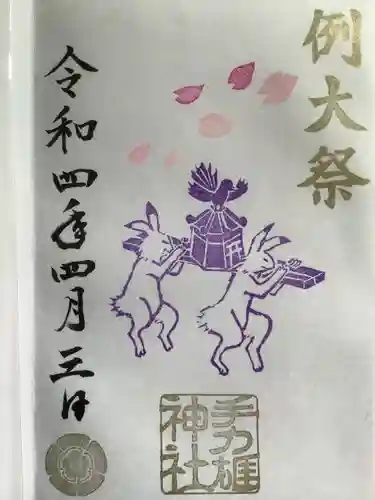 例大祭
令和四年四月三日
手力雄
神社